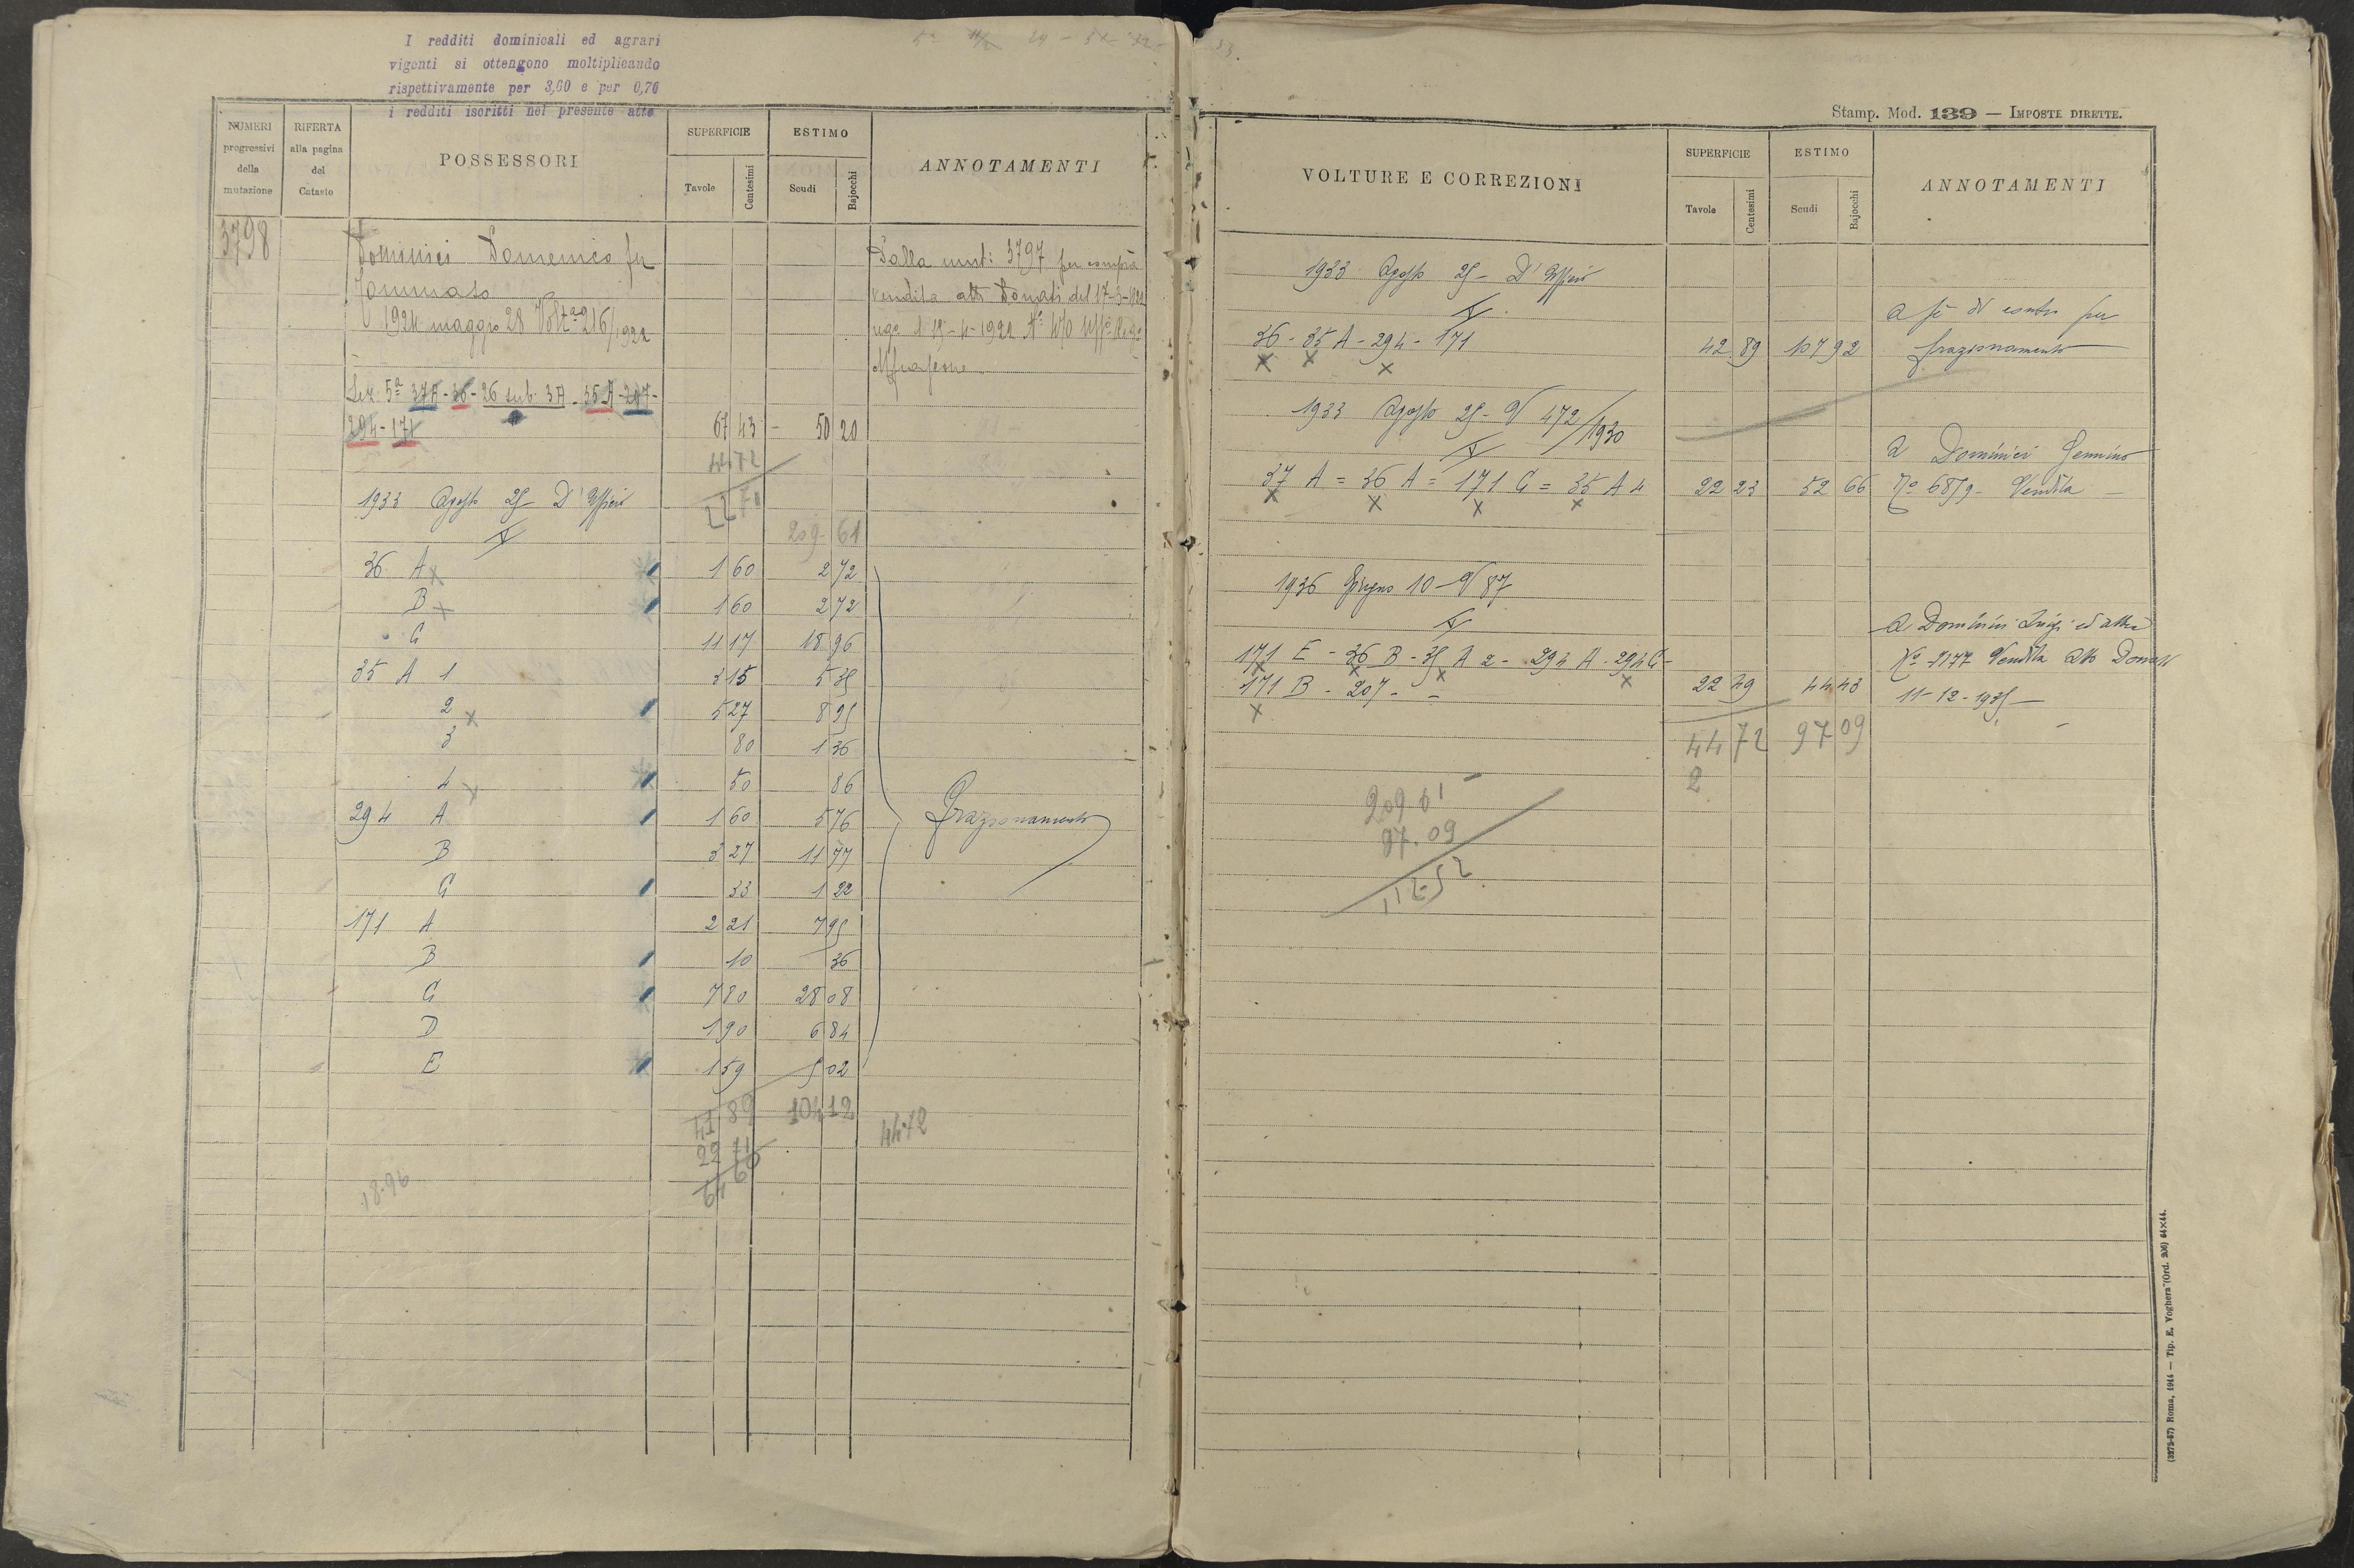 I redditi dominicali ed agrari
vigenti si ottengono moltiplicando
rispettivamente per 3,60 e per 0,76
i redditi iscritti nel presente atto
NUMERI progressivi della mutazione
RIFERTA alla pagina del Catasto
POSSESSORI
SUPERFICIE
Tavole
Centesimi
ESTIMO
Scudi
Bajocchi
ANNOTAMENTI
3798
Dominici Domenico fu
Tommaso
1924 maggio 28 Volt.a 216/1922
Dalla mut: 3797 per compra
vendita atto Donati del 17-3-1922
Sez. 5a 37A - 36 - 26 sub. 3A - 35A - 207 -
294 - 171 67 43 - 50 20
44 72
22 71
1933 Agosto 25 - D'Ufficio
209 61
36 A x 1 60 2 72
B x 1 60 2 72
C 11 17 18 96
35 A 1 3 15 5 35
2 x 5 27 8 95
3 80 1 36
4 x 50 86
294 A 1 60 5 76
B 3 27 11 77
C 33 1 22
171 A 2 21 7 95
B 10 36
C 7 80 28 08
D 1 90 6 84
E 1 59 5 02
Frazionamento
41 89 104 12
22 71
64 60
4472
18.96
Stamp. Mod. 139 — IMPOSTE DIRETTE.
VOLTURE E CORREZIONI
SUPERFICIE
Tavole
Centesimi
ESTIMO
Scudi
Bajocchi
ANNOTAMENTI
1933 Agosto 25 - D'Ufficio
36 - 35 A - 294 - 171 42 89 107 92
a sè di contro per
frazionamento
1933 Agosto 25 - V 472/1930
37 A = 36 A = 171 C = 35 A 4 22 23 52 66
a Dominici Gemino
No 6879 - Vendita
1936 Giugno 10 - V 87
171 E - 36 B - 35 A 2 - 294 A - 294 C -
171 B - 207 - 22 49 44 43
a Dominici Luigi ed altri
Vendita Atto Donati
11-12-1935
44 72 97 09
2
209 61
97.09
112 52
(3275-57) Roma, 1914 — Tip. E. Voghera (Ord. 206) 64×44.